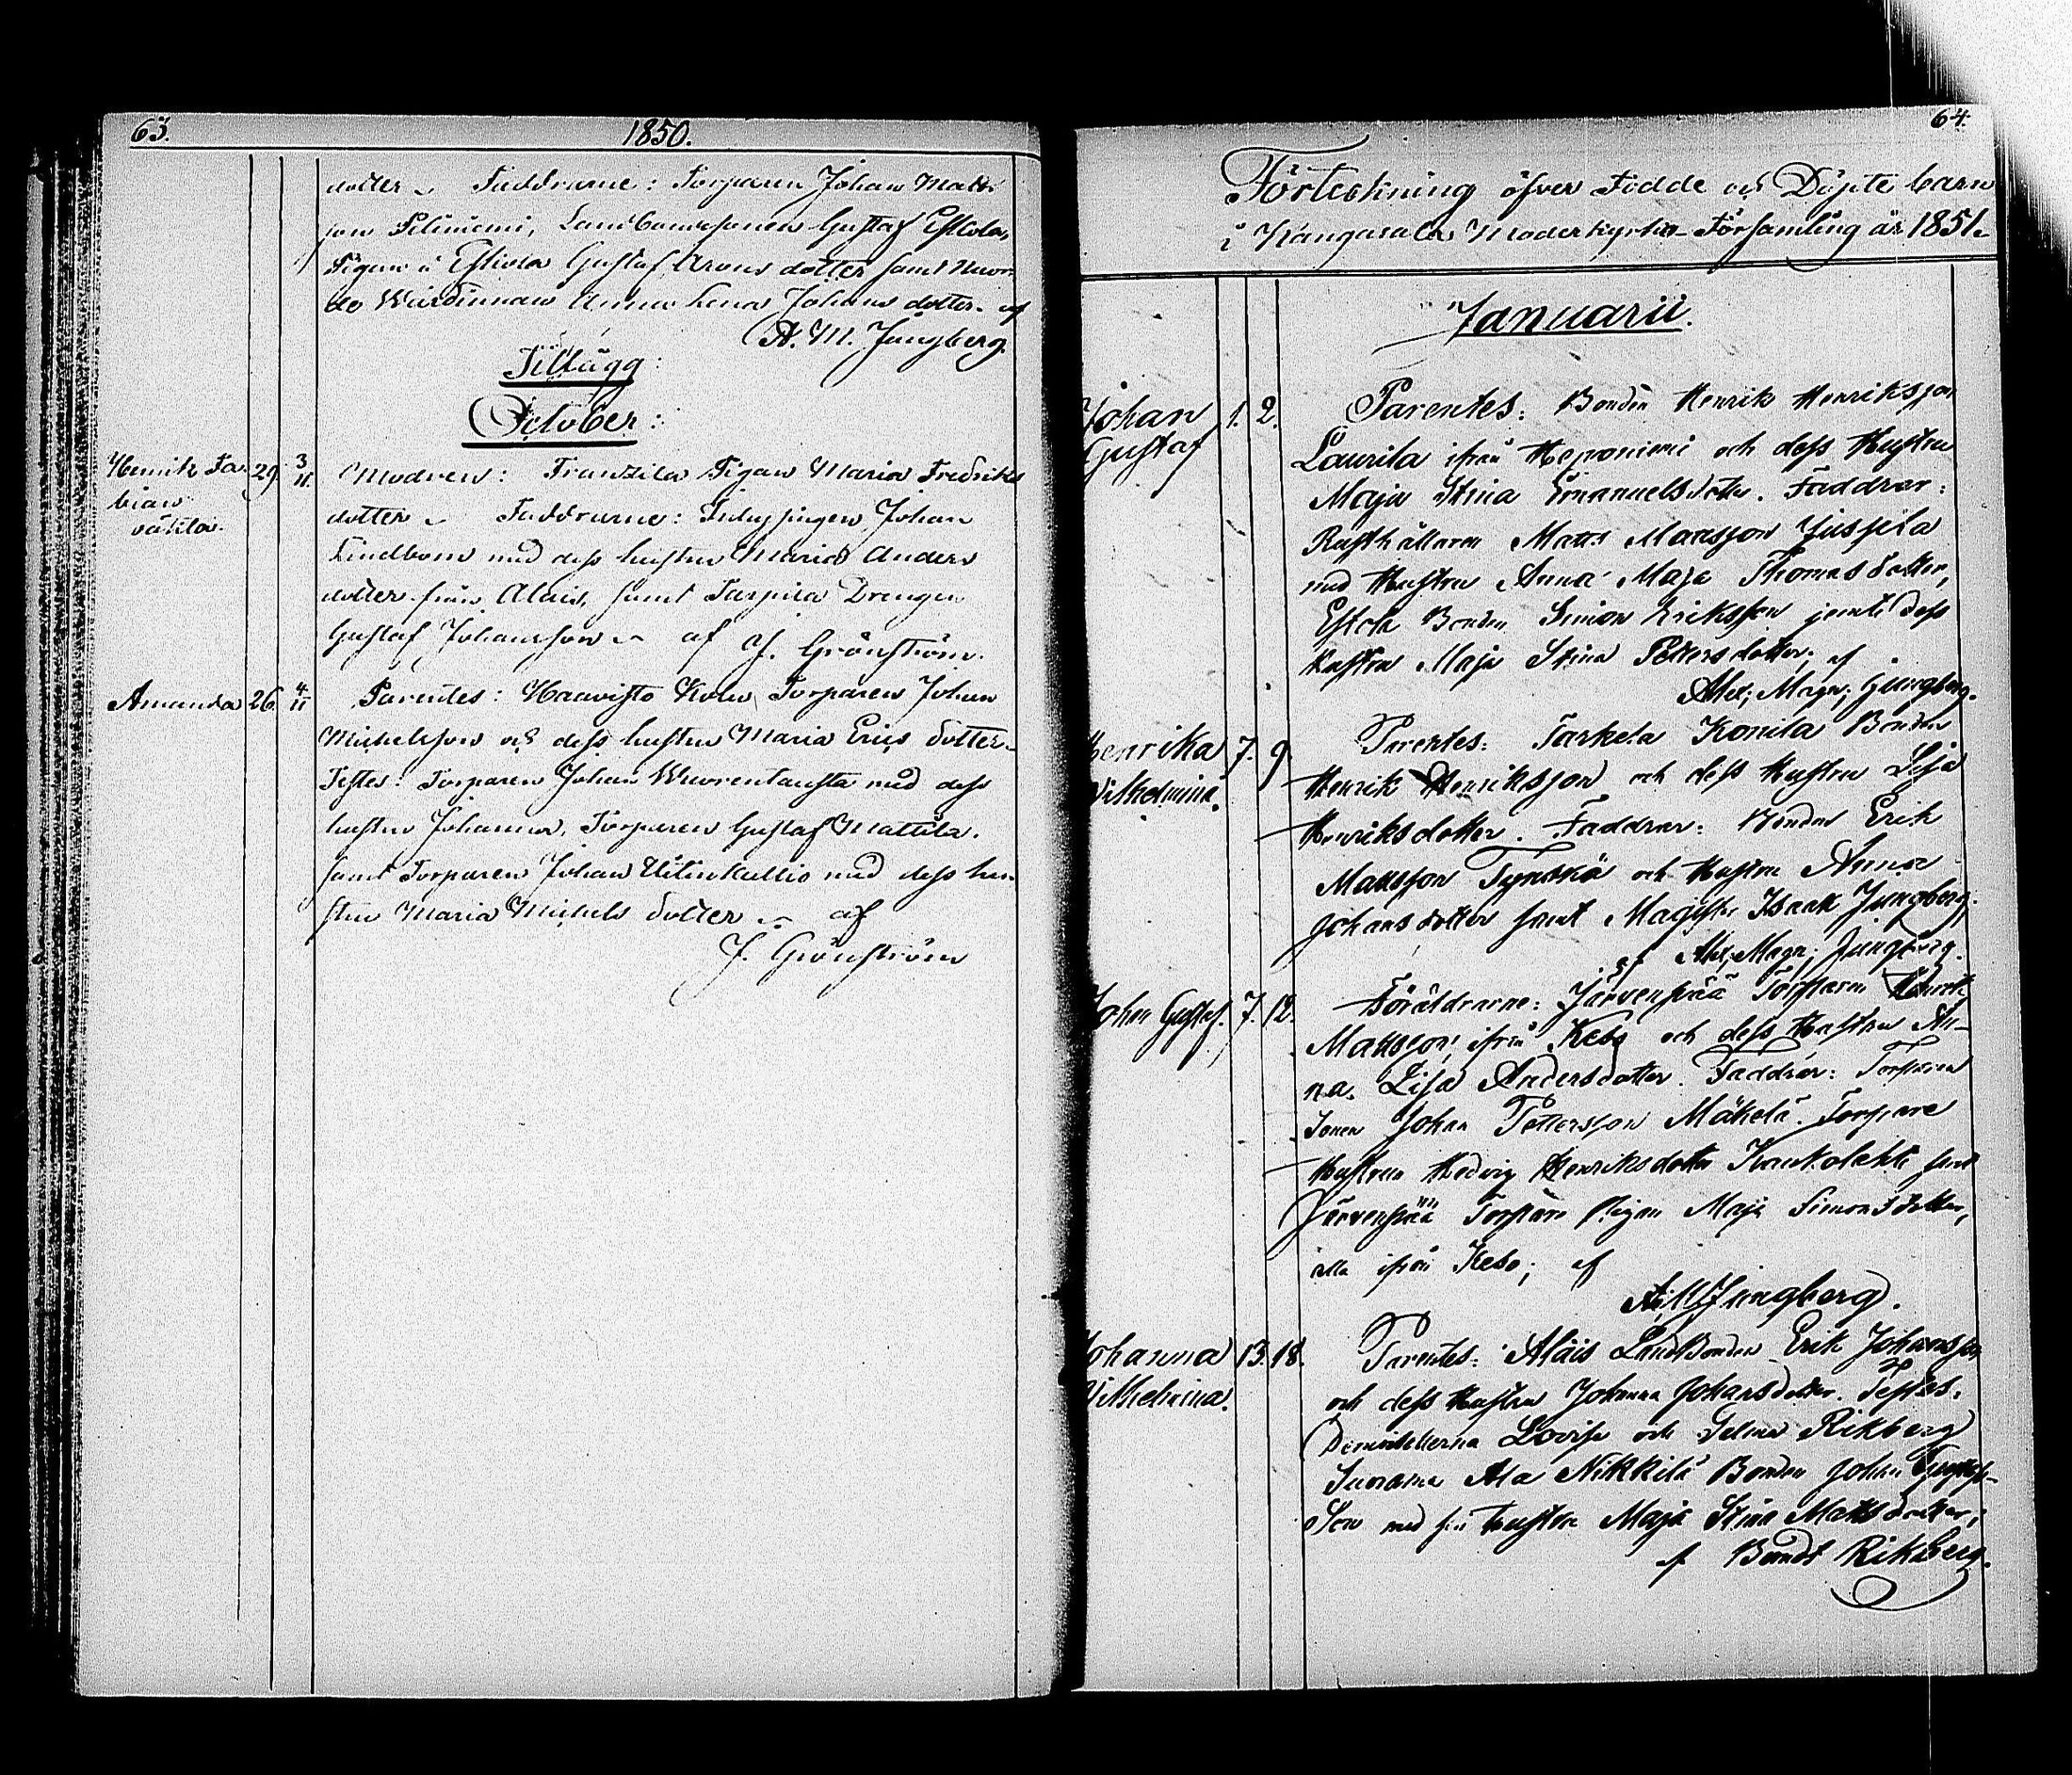 63.
1850.
dotter. Faddrarne: Torparen Johan Matts
son Petiniemi, Landbondesonen Gustaf Eskola,
Pigan i Eskola Gustaf Arons dotter samt
Wärdinnan Anna Lena Johans dotter. af
A. M. Jungberg.
Tillägg:
October:
Henrik Fa- 29. 3/11. Modren: Franzila Pigan Maria Fredriks
bian
oäkta.
dotter. Faddrarne: Johan
Lindbom med dess hustru Maria Anders
dotter från Alais, samt Tarpila Drengen
Gustaf Johansson af J. Grönström.
Amanda 26. 4/11 Parentes: Haavisto Torparen Johan
Michelsson och dess hustru Maria Erics dotter.
Testes: Torparen Johan Wuorentausta med dess
hustru Johanna, Torparen Gustaf Mattila.
samt Torparen Johan med dess hu
stru Maria Michels dotter. af
J. Grönström
64.
Förteckning öfver Födde och Döpte barn
i Kangasala Moderkyrko-Församling år 1851.
Januarii.
Johan 1. 2. Parentes: Bonden Henrik Henriksson
Gustaf
Laurila ifrån Heponiemi och dess Hustru
Maja Stina Emanuelsdotter. Faddrar:
Rusthållaren Matts Mattsson Jussila
med Hustru Anna Maja Thomasdotter,
Eskola Bonden Simon Eriksson jemte dess
Hustru Maja Stina Pettersdotter; af
Alex; Magn; Jungberg.
Henrika 7. 9. Parentes: Tarkela Komila Bonden
Wilhelmina.
Henrik Henriksson och dess Hustru Lisa
Henriksdotter. Faddrar: Bonden Erik
Mattsson Tynskä och Hustru Anna
Johansdotter samt Magister Isaak Jungberg.
af Alex; Magn; Jungberg.
Johan Gustaf. 7. 12. Föräldrarne: Järvenpää Torparen Henrik
Mattsson ifrån Keso och dess Hustru An-
na Lisa Andersdotter. Faddrar: Torpare
Sonen Johan Pettersson Mäkelä. Torpare
Hustrun Hedvig Henriksdotter Kaukolehti samt
Järvenpää Torpare Pigan Maja Simonsdotter,
alla ifrån Keso; af
A. M. Jungberg.
Johanna 13. 18. Parentes: Alais Landbonden Erik Johansson
Wilhelmina.
och dess Hustru Johanna Johansdotter. Testes:
Demoisellerna Lovisa och Selma Rikberg
Suorama Ala Nikkilä Bonden Johan Gustaf-
Son med sin hustru Maja Stina Mattsdotter;
af Berndt Rikberg.